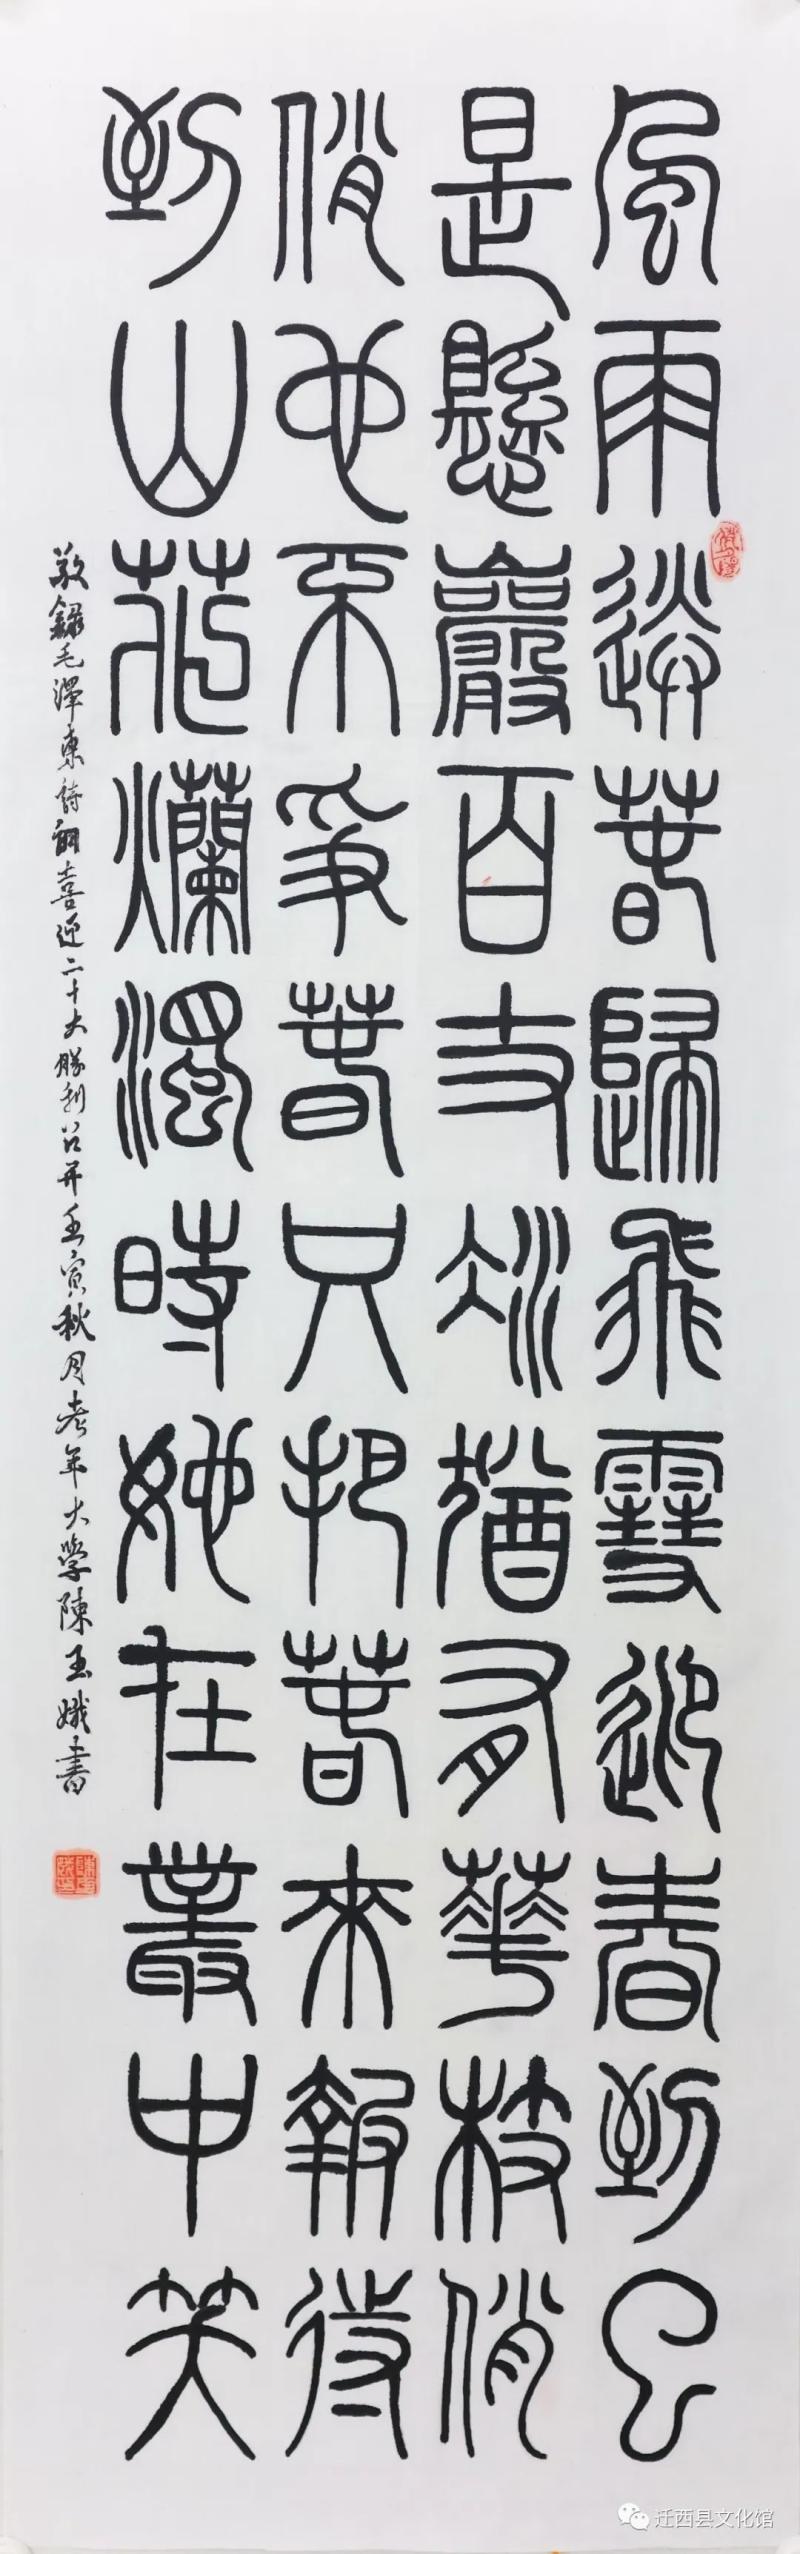 風雨送春歸飛雪迎春到已
是懸巖百丈冰猶有華枝俏
俏也不爭春只把春來報待
到山花爛漫時她在叢中笑
敬錄毛澤東詩詞喜迎二十大勝利召开壬寅秋月老年大學陳玉娥書
迁西县文化馆